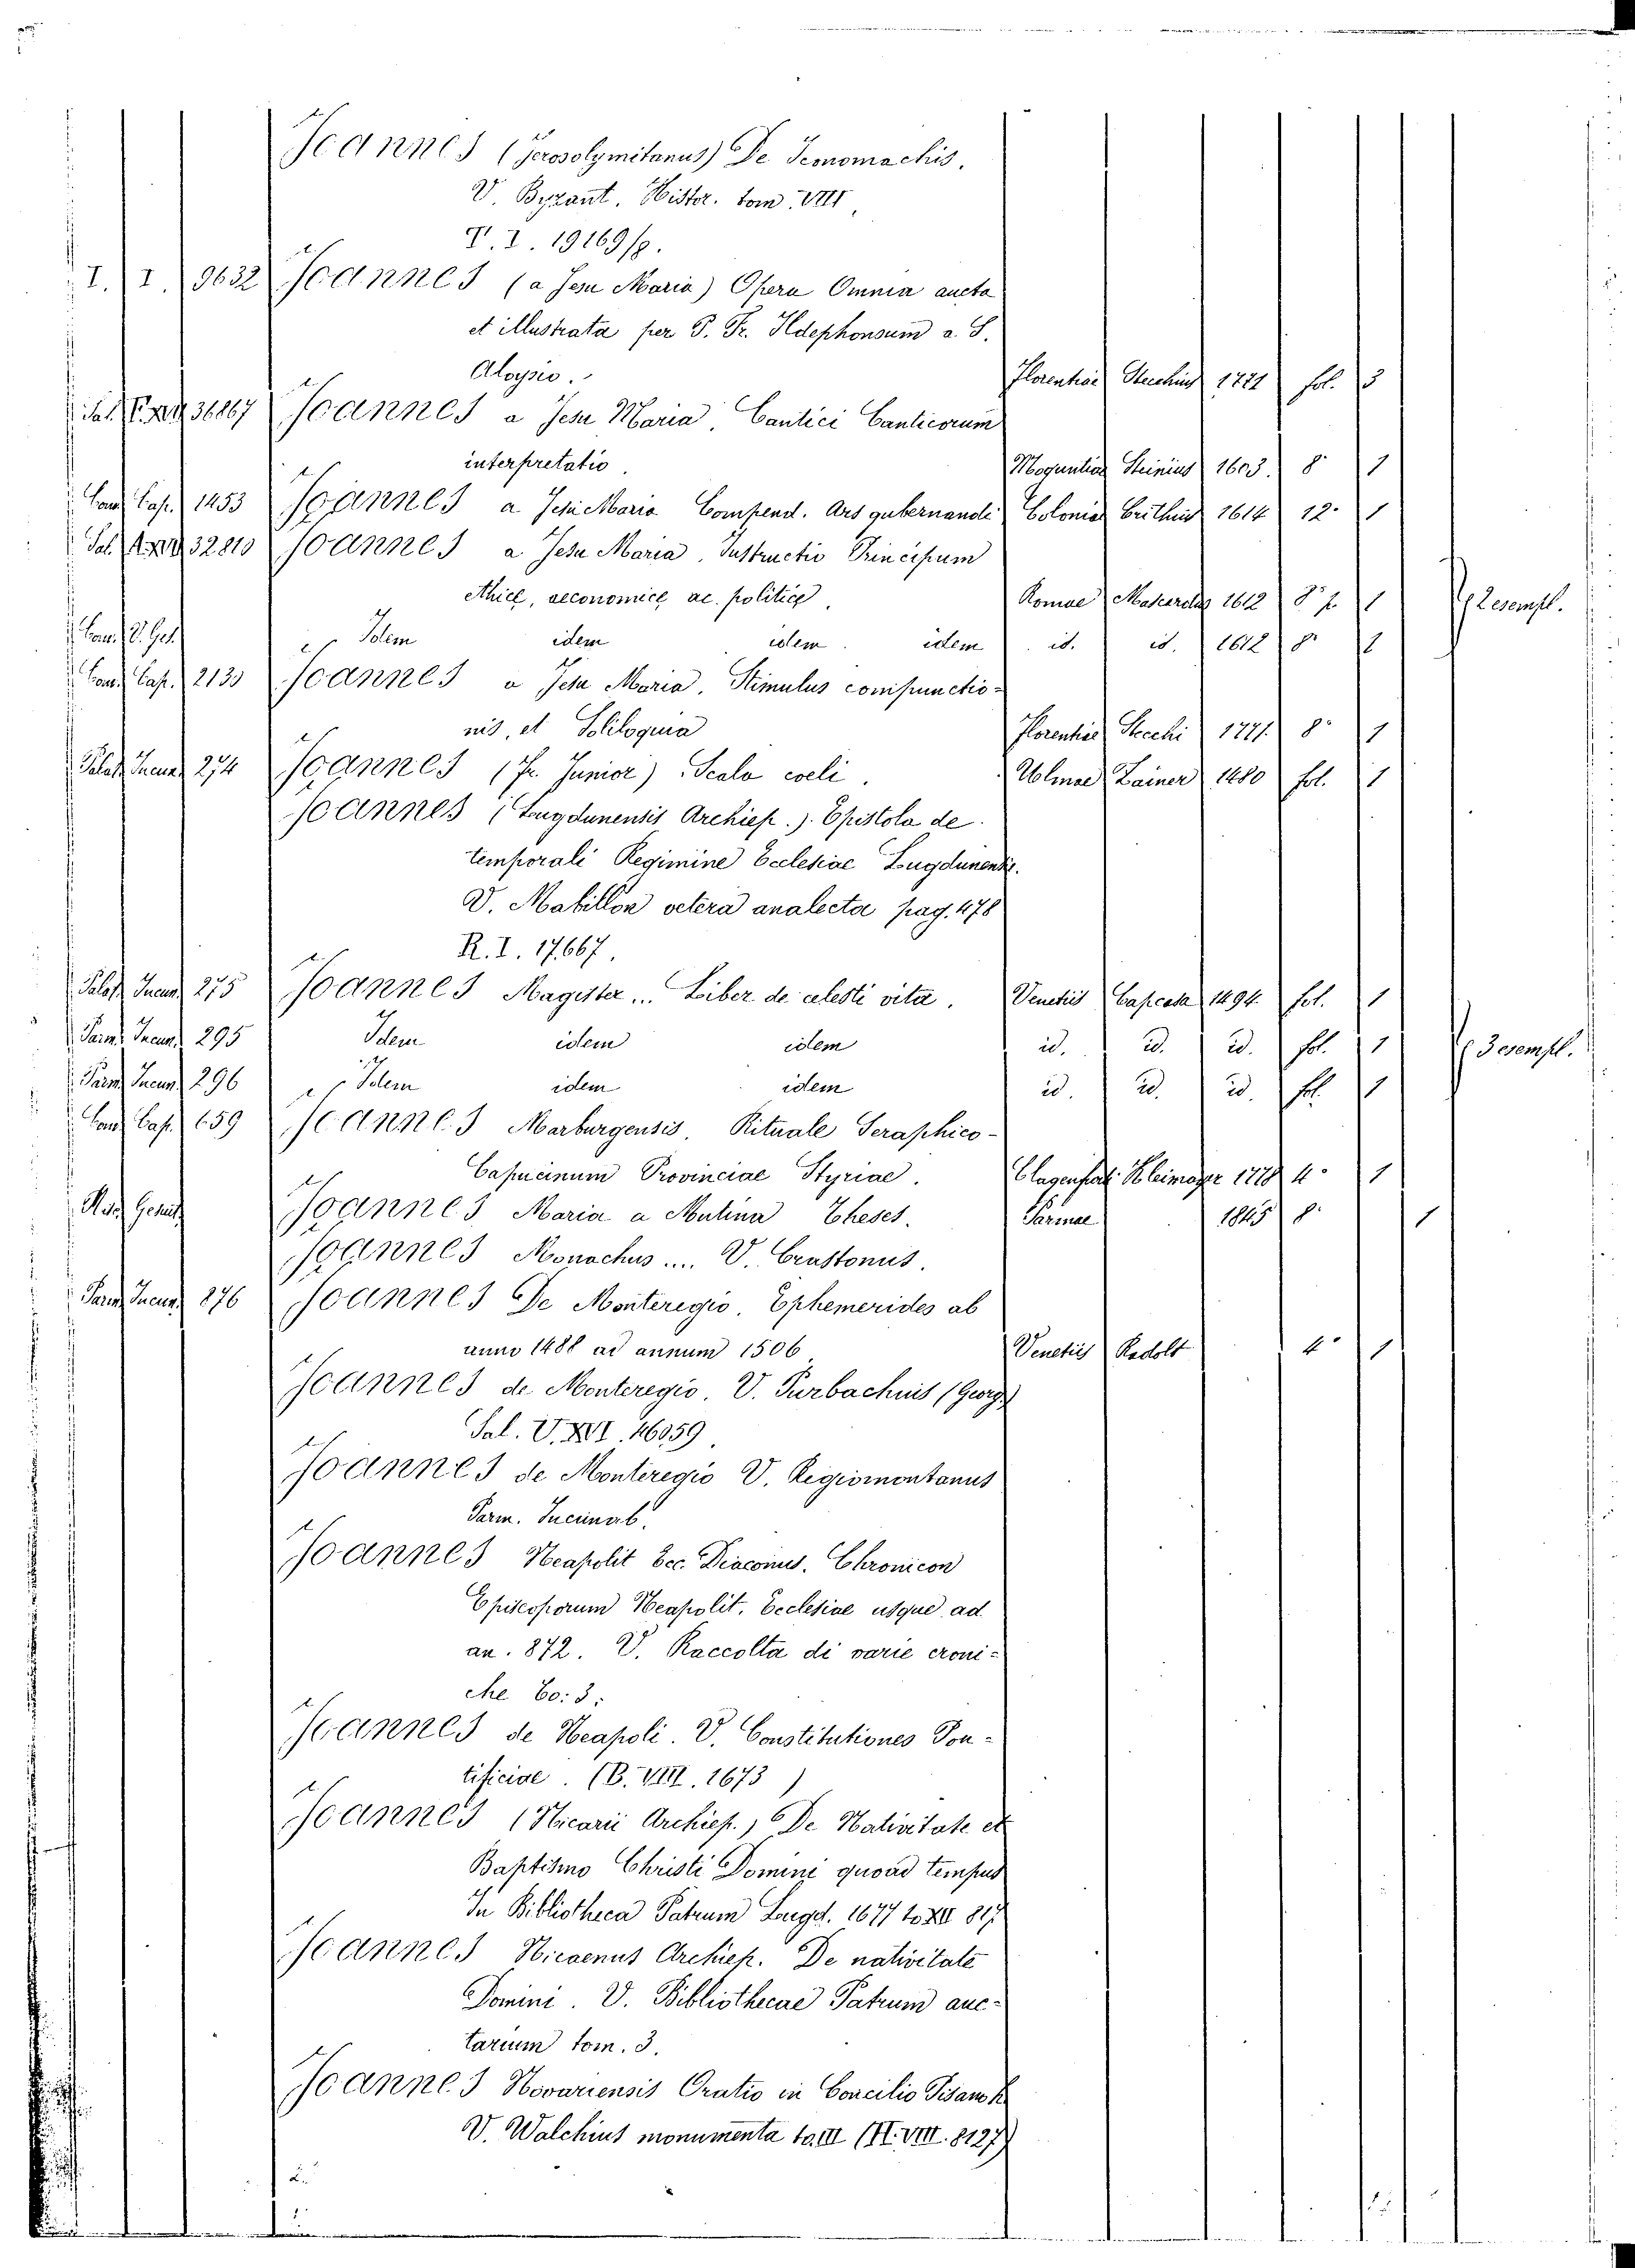 Joannes (Jerosolymitanus) De Iconomachis.
V. Byzant. Histor. tom. VIII
T. I. 19169/8.
I. I. 9632 Joannes (a Jesu Maria) Opera Omnia aucta
et illustrata per P. Fr. Ildephonsum a S.
Aloysio. Florentiae 1771 fol. 3
Sal. 36867 Joannes a Jesu Maria, Cantici Canticorum
interpretatio. Moguntiae Steinius 1603. 8° 1
Cam. Cap. 1453 Joannes a Jesu Maria Compend. Ars gubernandi Coloniae 1614 12° 1
Sal. 32810 Joannes a Jesu Maria. Instructio Principum
Ethice, oeconomice ac politice. Romae Mascardus 1612 8° 1 2 esempl.
Cam. Idem idem idem idem id. id. 1612 8° 1
Cam. Cap. 2133 Joannes a Jesu Maria. Stimulus compunctio-
nis, et Soliloquia Florentiae Stecchi 1771. 8° 1
Palat. Incun. 274 Joannes (Fr. Junior) Scala coeli. Ulmae Zainer 1480 fol. 1
Joannes (Lugdunensis Archiep.). Epistola de
temporali Regimine Ecclesiae Lugdunensis.
V. Mabillon vetera analecta pag. 478
R. I. 17667.
Palat. Incun. 275 Joannes Magister... Liber de celesti vita. Venetiis Capcasa 1494. fol. 1
Parm. Incun. 295 Idem idem idem id. id. id. fol. 1 3 esempl.
Parm. Incun. 296 Idem idem idem id. id. id. fol. 1
Cam. Cap. 659 Joannes Marburgensis, Rituale Seraphico-
Capucinum Provinciae Styriae. Clagenfurti Kleimayer 1778 4° 1
Joannes Maria a Mutina Theses. Parmae 1845 8° 1
Joannes Monachus.... V. Crastonus.
Parm. Incun. 276 Joannes De Monteregio. Ephemerides ab
anno 1488 ad annum 1506 Venetiis Radolt 4° 1
Joannes de Monteregio. V. Purbachius (Georg.)
Sal. V. XVI. 46059
Joannes de Monteregio V. Regiomontanus
Parm. Incunab.
Joannes Neapolit Ecc. Diaconus. Chronicon
Episcoporum Neapolit. Ecclesiae usque ad
an. 872. V. Raccolta di varie croni-
che to: 3:
Joannes de Neapoli. V. Constitutiones Pon-
tificiae. (B. VIII. 1673)
Joannes (Nicarii Archiep.) De Nativitate et
Baptismo Christi Domini quoad tempus
In Bibliotheca Patrum Lugd. 1677 to XII 817
Joannes Nicaenus Archiep. De nativitate
Domini. V. Bibliothecae Patrum auc-
tarium tom. 3.
Joannes Novariensis Oratio in Concilio Pisano
V. Walchius monumenta to. III (H. VIII. 8127)